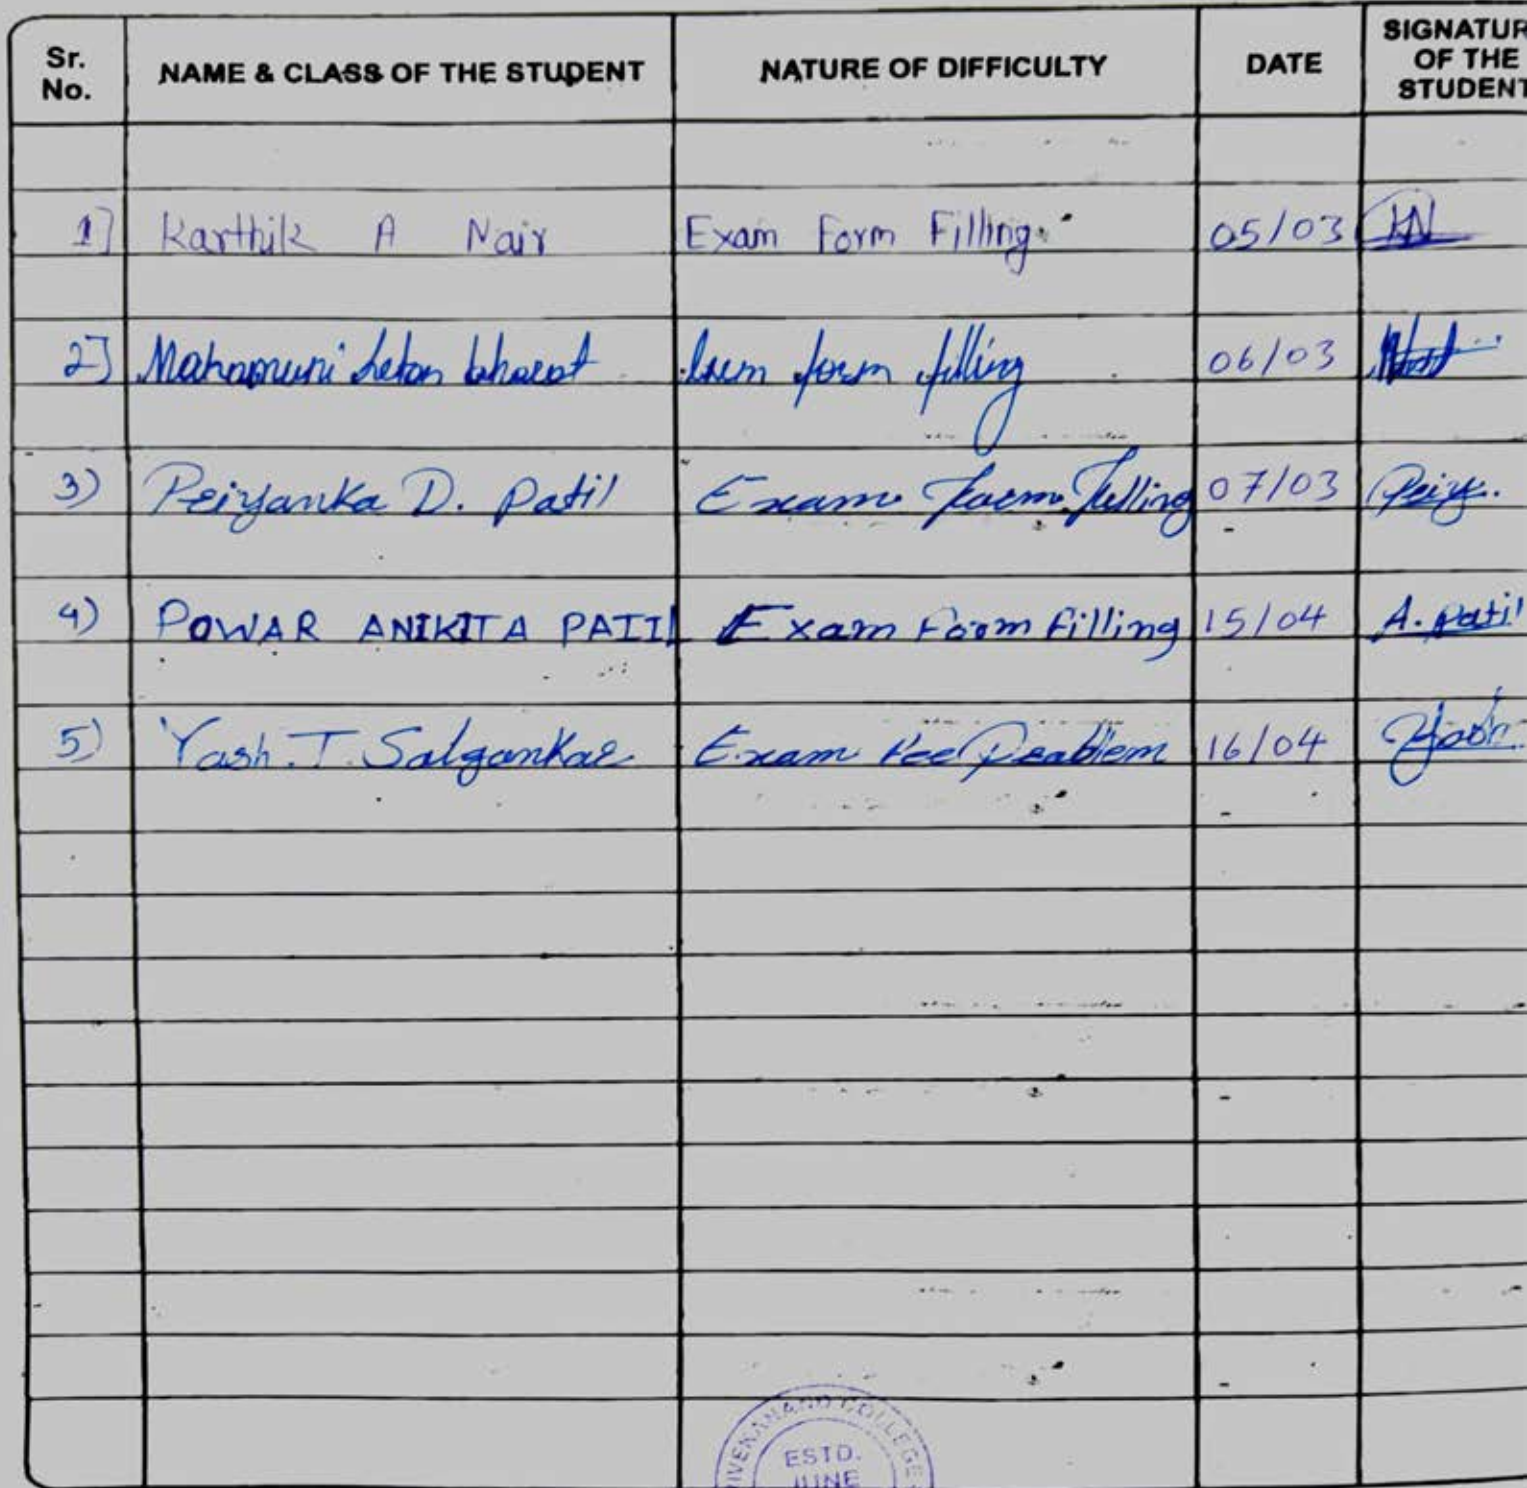 Sr. No. NAME & CLASS OF THE STUDENT NATURE OF DIFFICULTY DATE SIGNATUR OF THE STUDENT
1] Karthik A Nair Exam Form Filling. 05/03 KN
2] Mahamuni bharat form filling 06/03
3) Priyanka D. Patil Exam Form Filling 07/03 Priy.
4) POWAR ANIKITA PATIL Exam Form Filling 15/04 A. Patil
5) Yash. T. Salgankar Exam Fee Problem 16/04 Yash
VIVEKANAND COLLEGE
ESTD.
JUNE